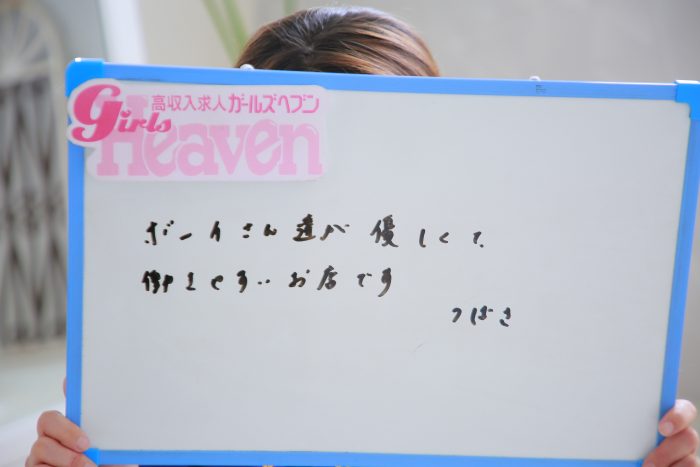 高収入求人ガールズヘブン
Girls
Heaven
ボーイさん達が優しくて、
働きやすいお店です
つばさ